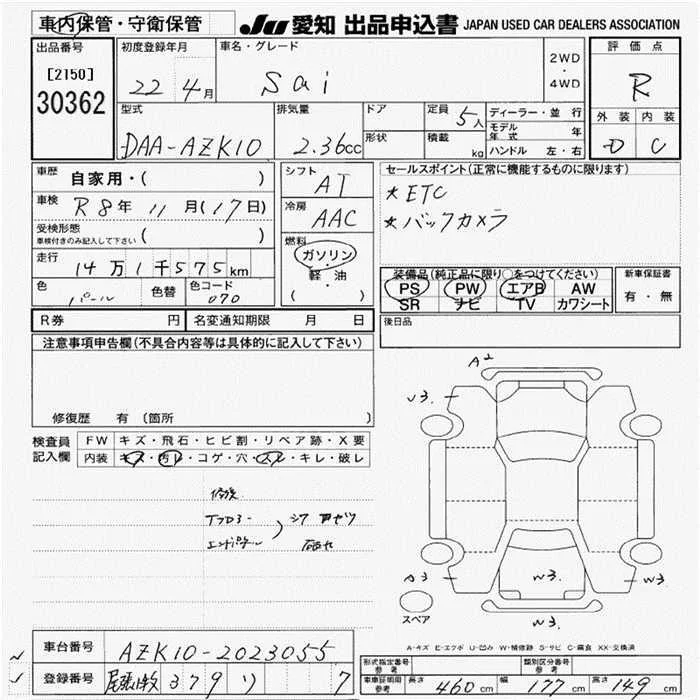 車内保管・守衛保管
JU 愛知 出品申込書 JAPAN USED CAR DEALERS ASSOCIATION
出品番号
[2150]
30362
初度登録年月
22 4月
車名・グレード
Sai
2WD
・
4WD
評価点
R
外装 内装
D C
型式
DAA-AZK10
排気量
2.36cc
ドア
形状
定員 5人
積載 kg
ディーラー・並行
モデル年式 年
ハンドル 左・右
車歴 自家用・( )
車検 R8年 11月(17日)
受検形態
車検付きのみ記入して下さい ( )
走行 14万1千575km
色 パール
色替
色コード 070
シフト AT
冷房 AAC
燃料
ガソリン
・
軽油
( )
セールスポイント(正常に機能するものに限ります)
★ETC
★バックカメラ
装備品(純正品に限り○をつけてください)
PS PW エアB AW
SR ナビ TV カワシート
新車保証書
有・無
後日品
R券 円
名変通知期限 月 日
注意事項申告欄(不具合内容等は具体的に記入して下さい)
修復歴 有 (箇所 )
検査員
記入欄
FW キズ・飛石・ヒビ割・リペア跡・X要
内装 キズ・汚レ・コゲ・穴・スレ・キレ・破レ
修復
エンドパネル
A2
U3.
A3
W3.
W3
W3.
スペア
A-キズ E-エクボ U-凹み W-補修跡 S-サビ C-腐食 XX-交換済
車台番号 AZK10-2023055
登録番号 379 7
形式指定番号
参考
類別区分番号
参考
車庫証明用
参考
長さ 460cm
幅 177cm
高さ 149cm